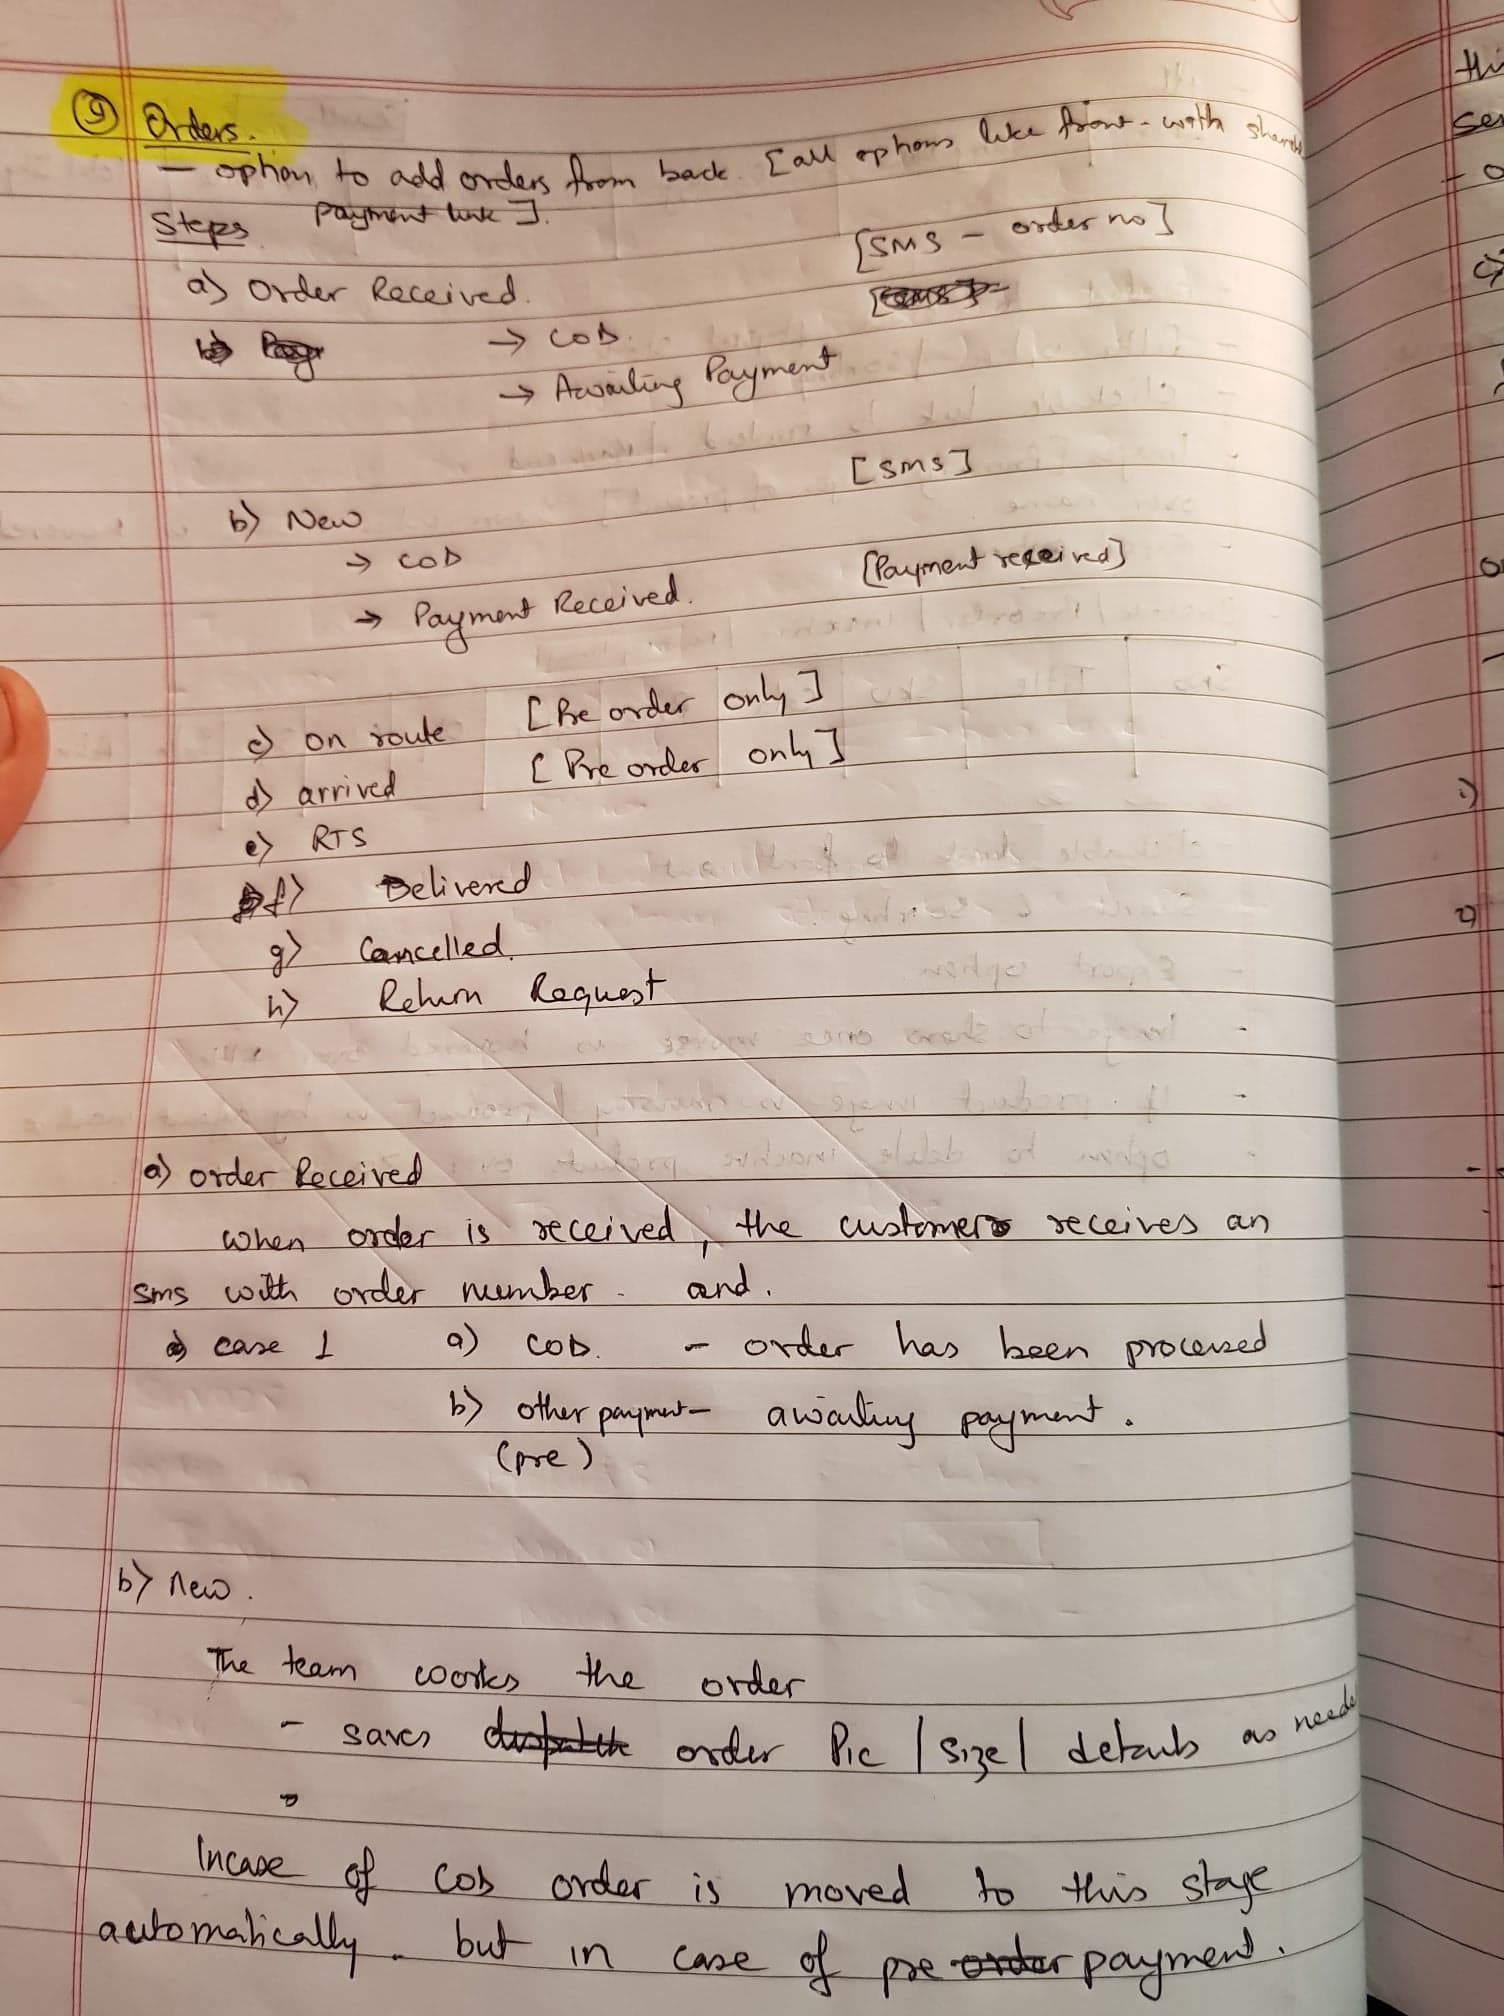 9 Orders.
- option to add orders from back [all options like front - with
payment link].
Steps
[SMS - order no]
a) Order Received.
→ COD.
→ Awaiting Payment
[SMS]
b) New
→ COD
[Payment received]
→ Payment Received.
c) on route [Pre order only]
d) arrived [Pre order only]
e) RTS
f) Delivered
g) Cancelled.
h) Return Request
a) order Received
when order is received, the customer receives an
sms with order number. and.
case 1 a) COD. - order has been processed
b) other payment - awaiting payment.
(pre)
b) New.
The team works the order
- saves order Pic / size / details as
Incase of COD order is moved to this stage
automatically. but in case of pre payment.